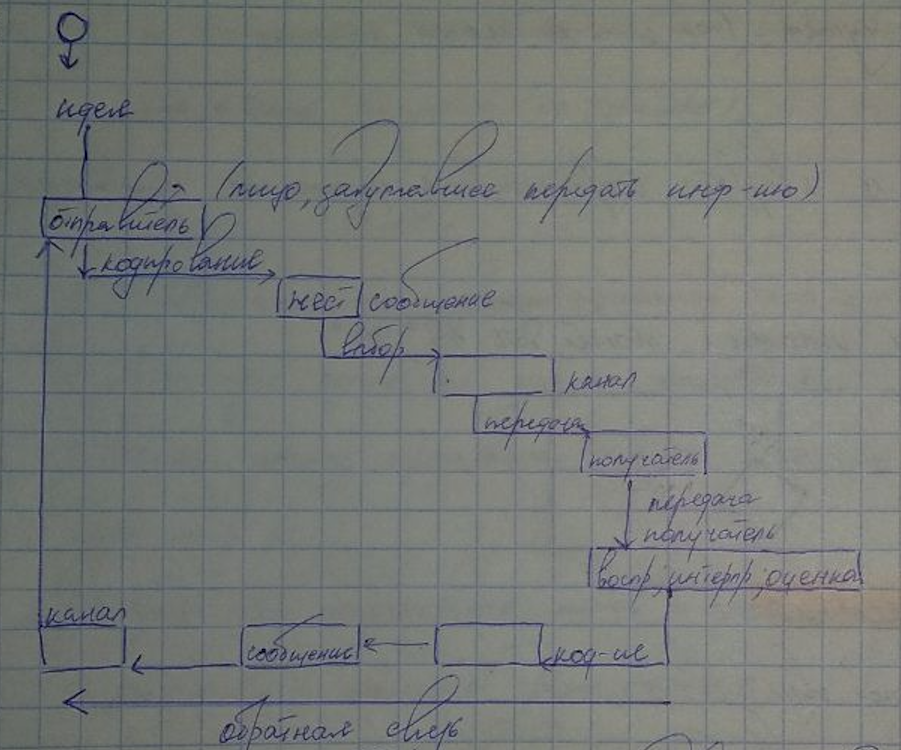 идея
(лицо, задумавшее передать инф-ию)
отправитель
кодирование
жест сообщение
выбор
канал
передача
получатель
передача
получатель
воспр, интерпр, оценка
канал
сообщение
код-ие
обратная связь